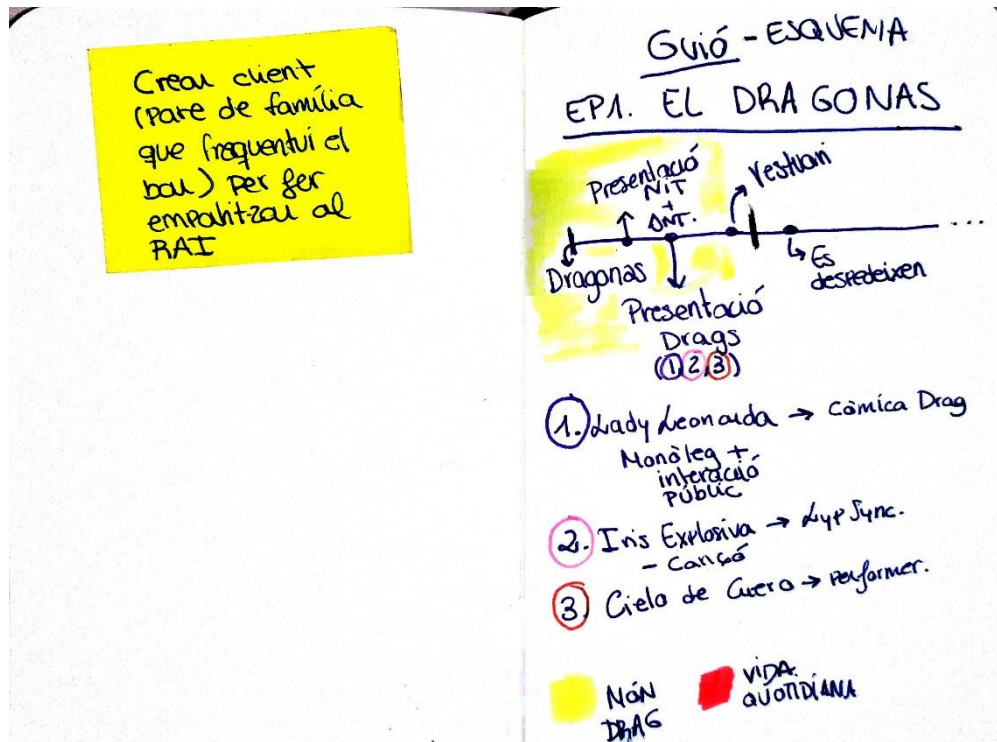 Crear client
(pare de família
que frequentui el
bar) per fer
empatitzar al
RAI
Guió - ESQUEMA
EP1. EL DRAGONAS
Presentació
NiT
+
ANT.
Vestuari
...
Dragonas
Es
despedeixen
Presentació
Drags
(1,2,3)
1. Lady Leonarda → Còmica Drag
Monòleg +
interació
públic
2. Iris Explosiva → Lyp Sync.
- Cançó
3. Cielo de Cuero → performer.
MÓN
DRAG
ViDA
QUOTIDÍANA